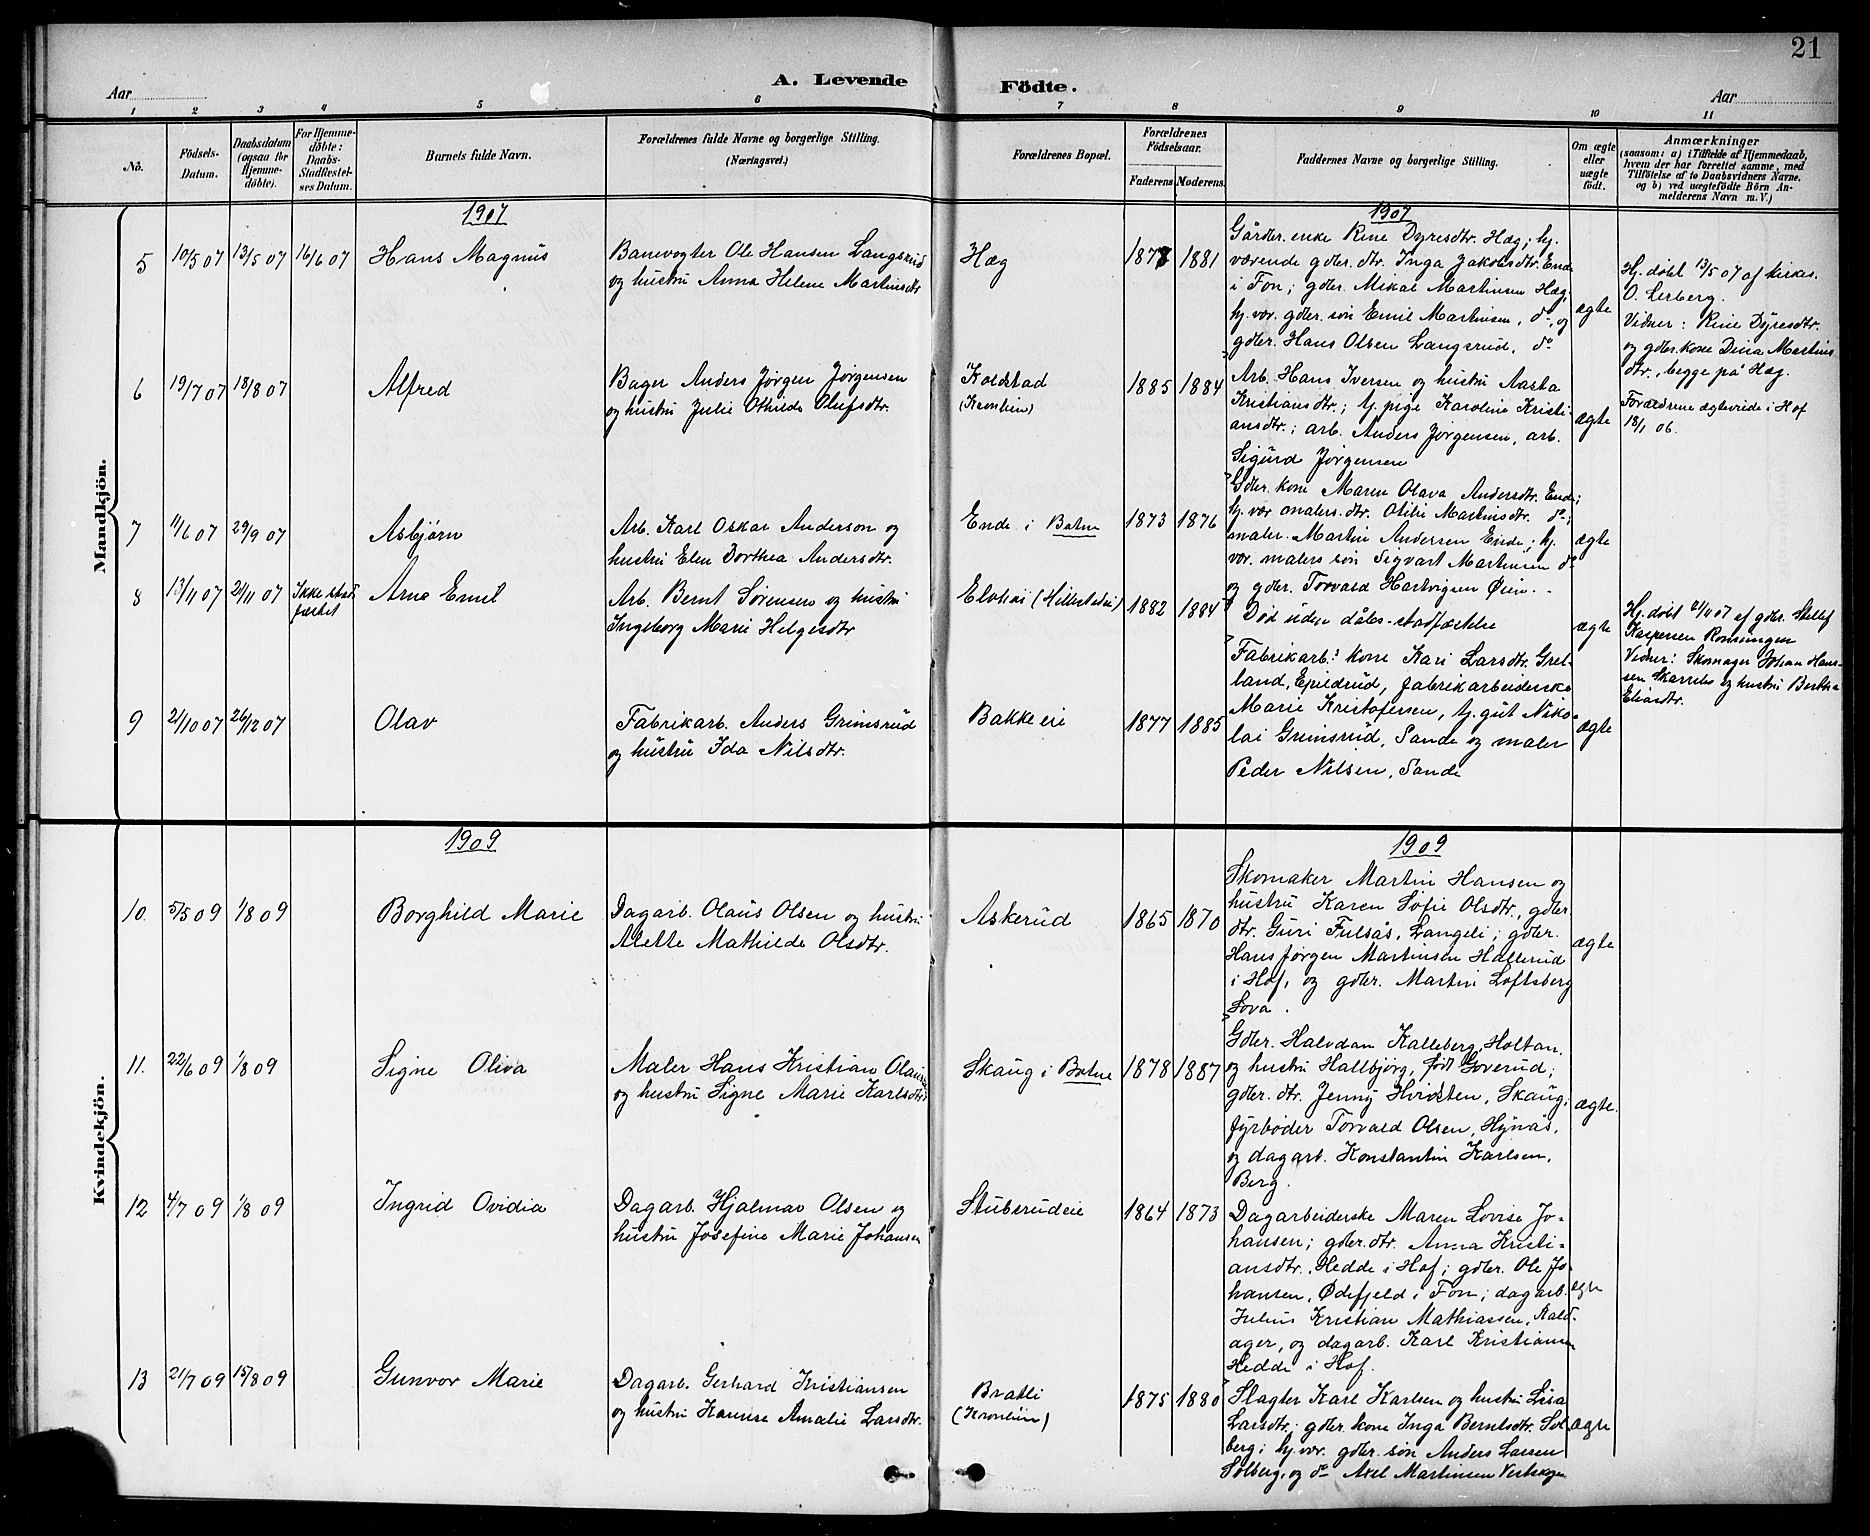 21
A. Levende Födte.
Aar
Aar
1 2 3 4 5 6 7 8 9 10 11
No.
Födsels-Datum.
Daabsdatum (ogsaa for Hjemmedöbte).
For Hjemmedöbte: Daabs-Stadfæstelses Datum.
Barnets fulde Navn.
Forældrenes fulde Navne og borgerlige Stilling.
(Næringsvei.)
Forældrenes Bopæl.
Forældrenes Födselsaar.
Faderens Moderens.
Faddernes Navne og borgerlige Stilling.
Om ægte eller uægte födt.
Anmærkninger
(saasom: a) i Tilfælde af Hjemmedaab,
hvem der har forrettet samme, med
Tilföielse af to Daabsvidners Navne,
og b) ved uægtefödte Börn An-
melderens Navn m. V.)
Mandkjön.
1907
1907
5 10/5 07 13/5 07 16/6 07 Hans Magnus
Banevogter Ole Hansen Langsrud
og hustru Anna Helene Martinsdtr
Hæg
1877 1881
Gårdbr. enke Rine Dyresdtr. Hæg; hj.
værende gdbr. dtr. Inga Jakobsdtr. Ende
i Fon; gdbr. Mikal Martinsen Hæg,
hj. vær. gdbr. søn Emil Martinsen, do, og
gdbr. Hans Olsen Langsrud, do
ægte
Hj. døbt 13/5 07 af kirkes.
O. Lerberg.
Vidner: Rine Dyresdtr.
og gdbr. kone Dina Martins
dtr., begge på Hæg.
6 19/7 07 18/8 07 Alfred
Bager Anders Jørgen Jørgensen
og hustru Julie Othilde Olufsdtr.
Koldstad
(Kronlein)
1885 1884
Arb. Hans Iversen og hustru Aasta
Kristiansdtr.; tj. pige Karoline Kristi-
ansdtr.; arb. Anders Jørgensen, arb.
Sigurd Jørgensen
ægte
Forældrene ægteviede i Hof
18/1 06.
7 11/6 07 29/9 07 Asbjørn
Arb. Karl Oskar Anderson og
hustru Elen Dorthea Andersdtr.
Ende i Botne
1873 1876
Gdbr. kone Maren Olava Andersdtr. Ende;
hj. vær. malers. dtr. Otilie Martinsdtr. do;
maler. Martin Andersen Ende; hj.
vær. malers søn Sigvart Martinsen do
og gdbr. Torvald Hartvigsen Øien.
ægte
8 13/11 07 21/11 07 Ikke stad-
fæstet
Arne Emil
Arb. Bernt Sørensen og hustru
Ingeborg Marie Helgesdtr
1882 1884
Død uden dåbs-stadfæstelse
ægte
Hj. døbt 21/11 07 af gdbr. Stellef
Kaspersen Romsungen
Vidner: Skomager Johan Han-
sen Skarnes og hustru Berthe
Eliasdtr.
9 21/10 07 26/12 07 Olav
Fabrikarb. Anders Grimsrud
og hustru Ida Nilsdtr.
Bakkeeie
1877 1885
Fabrikarb.s kone Kari Larsdtr. Grel-
land, Epildrud, fabrikarbeiderske
Marie Kristofersen, tj. gut Niko-
lai Grimsrud, Sande og maler
Peder Nilsen, Sande
ægte
Kvindekjön.
1909
1909
10. 5/5 09 1/8 09 Borghild Marie
Dagarb. Olaus Olsen og hustru
Alette Mathilde Olsdtr.
Askerud
1865 1870
Skomaker Martin Hansen og
hustru Karen Sofie Olsdtr., gdbr.
dtr. Guri Fulsås, Langeli; gdbr.
Hans Jørgen Martinsen Hallerud
i Hof, og gdbr. Martin Loftsberg
Sova.
ægte
11. 22/6 09 1/8 09 Signe Oliva
Maler Hans Kristian Olausen
og hustru Signe Marie Karlsdtr.
Skaug i Botne
1878 1887
Gdbr. Halvdan Kalleberg, Holtan,
og hustru Hallbjørg, født Goverud;
gdbr. dtr. Jenny Hvidsten, Skaug;
fyrbøder Torvald Olsen, Hynås,
og dagarb. Konstantin Karlsen,
Berg.
ægte.
12 4/7 09 1/8 09 Ingrid Ovidia
Dagarb. Hjalmar Olsen og
hustru Josefine Marie Johansen
Stubsrudeie
1864 1873
Dagarbeiderske Maren Lovise Jo-
hansen; gdbr. dtr. Anna Kristi-
ansdtr. Hedde i Hof; gdbr. Ole Jo-
hansen, Ødefjeld i Fon; dagarb.
Julius Kristian Mathiassen, Kald-
ager, og dagarb. Karl Kristiansen
Hedde i Hof.
ægte
13 21/7 09 15/8 09 Gunvor Marie
Dagarb. Gerhard Kristiansen
og hustru Hanna Amalie Larsdtr.
Bratli
(Kronlein)
1875 1880
Slagter Karl Karlsen og hustru Lisa
Larsdtr.; gdbr. kone Inga Berntsdtr. Sol-
berg; hj. vær. gdbr. søn Anders Larsen
Solberg, og do Axel Martinsen
ægte